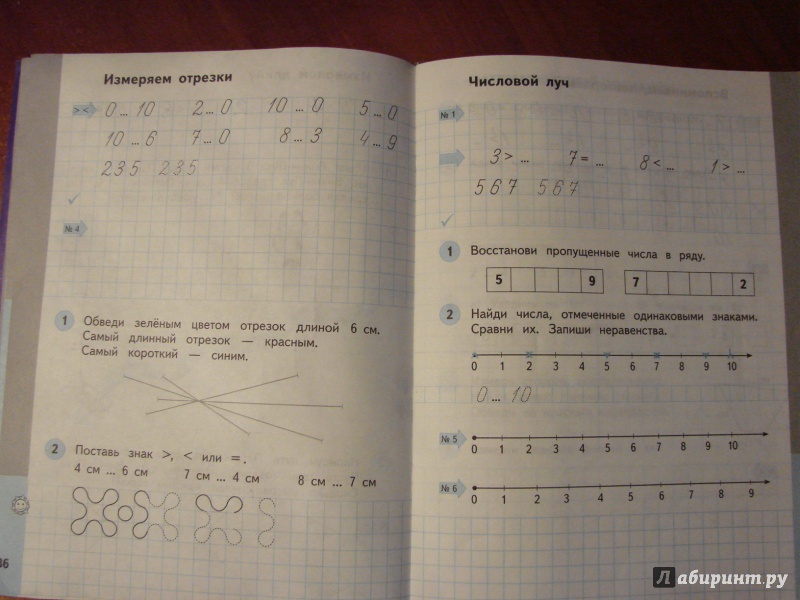 Измеряем отрезки
>< 0 ... 10 2 ... 0 10 ... 0 5 ... 0
10 ... 6 7 ... 0 8 ... 3 4 ... 9
235 235
№ 4
1 Обведи зелёным цветом отрезок длиной 6 см.
Самый длинный отрезок — красным.
Самый короткий — синим.
2 Поставь знак >, < или =.
4 см ... 6 см 7 см ... 4 см 8 см ... 7 см
36
Числовой луч
№ 1
3 > ... 7 = ... 8 < ... 1 > ...
567 567
1 Восстанови пропущенные числа в ряду.
5 9 7 2
2 Найди числа, отмеченные одинаковыми знаками.
Сравни их. Запиши неравенства.
0 1 2 3 4 5 6 7 8 9 10
0 ... 10
№ 5
0 1 2 3 4 5 6 7 8 9 10
№ 6
0 1 2 3 4 5 6 7 8 9
Лабиринт.ру